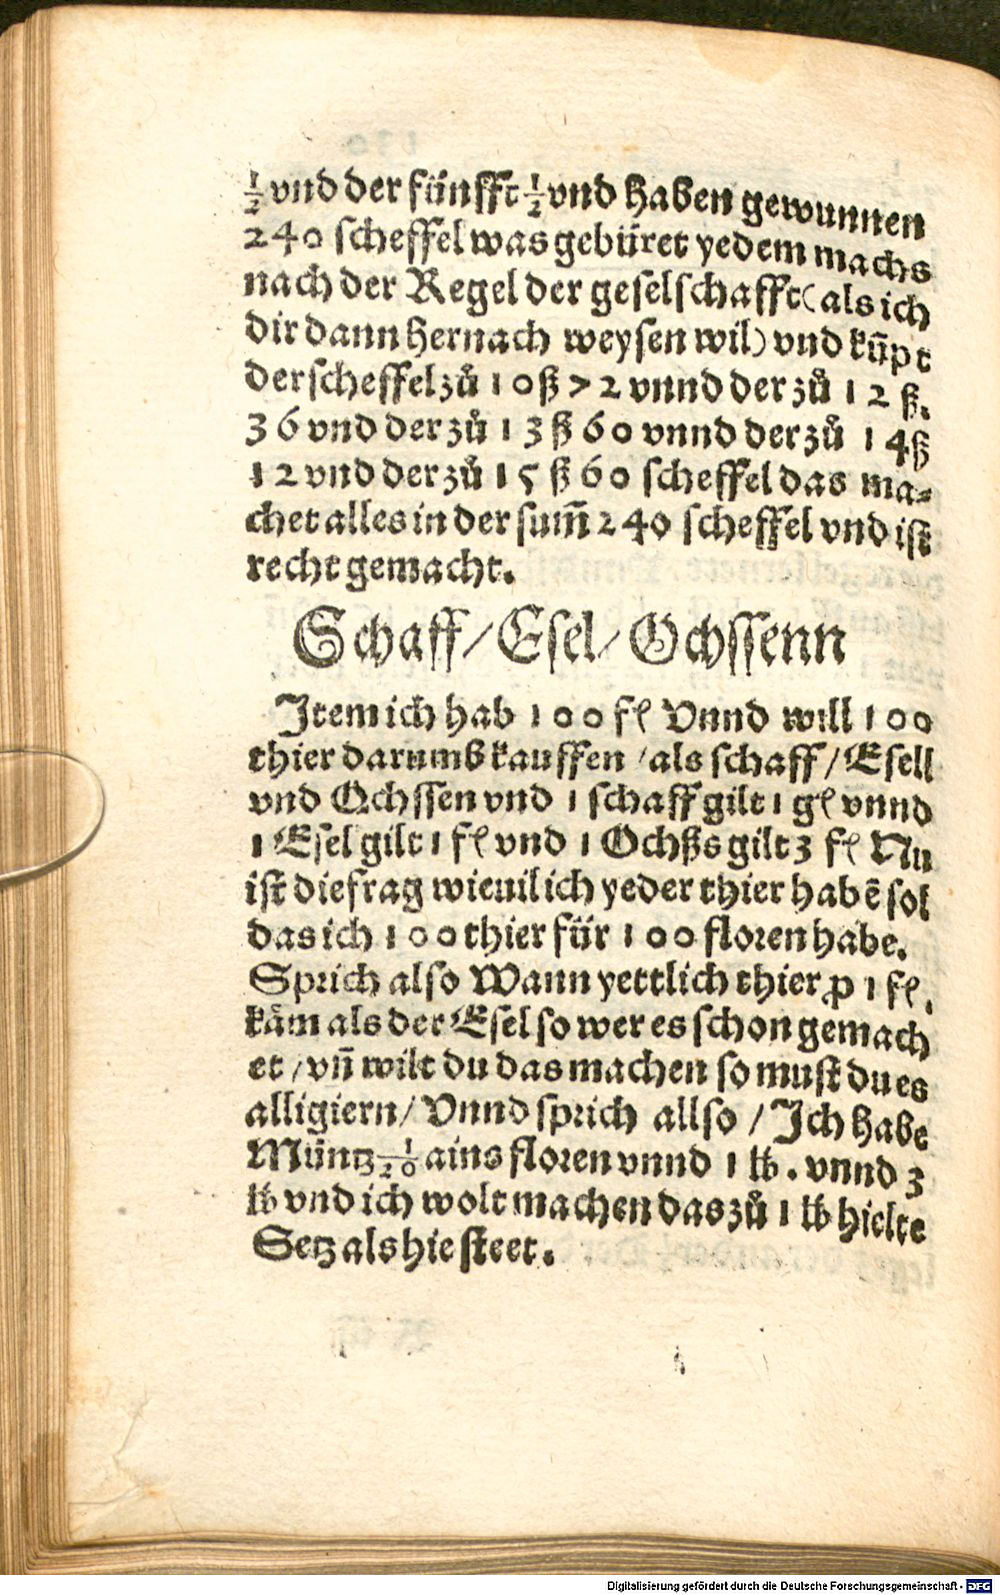 ½ vnd der fünfft ½ vnd haben gewunnen
240 scheffel was gebüret yedem machs
nach der Regel der geselschafft (als ich
dir dann hernach weysen wil) vnd kūpt
der scheffel zů 10 ß 72 vnnd der zů 12 ß.
36 vnd der zů 13 ß 60 vnnd der zů 14 ß
12 vnd der zů 15 ß 60 scheffel das ma-
chet alles in der sum̄ 240 scheffel vnd ist
recht gemacht.
Schaff / Esel / Ochssenn
Item ich hab 100 fl Vnnd will 100
thier darumb kauffen / als schaff / Esell
vnd Ochssen vnd 1 schaff gilt 1 gl vnnd
1 Esel gilt 1 fl vnd 1 Ochßs gilt 3 fl Nu
ist die frag wieuil ich yeder thier habē sol
das ich 100 thier für 100 floren habe.
Sprich also Wann yettlich thier ꝓ 1 fl.
käm als der Esel so wer es schon gemach
et / vn̄ wilt du das machen so must du es
alligiern / Vnnd sprich allso / Ich habe
Müntz 1/20 ains floren vnnd 1 lb. vnnd 3
lb vnd ich wolt machen das zů 1 lb hielte
Setz als hie steet.
Digitalisierung gefördert durch die Deutsche Forschungsgemeinschaft - DFG